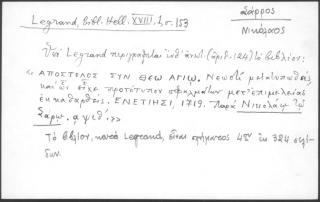 Legrand, Bibl. Hell. XVIII, 1, σ. 153
Σάρρος
Νικόλαος
Ὑπὸ Legrand περιγράφεται ὑπ' ἀριθ. (ἀριθ. 124) τὸ βιβλίον:
« ΑΠΟΣΤΟΛΟΣ ΣΥΝ ΘΕΩ ΑΓΙΩ. Νεωστὶ μετατυπωθεὶς
καὶ ὧν εἶχε προτύπων σφαλμάτων μετ' ἐπιμελείας
ἐκκαθαρθείς. ΕΝΕΤΙΗΣΙ, 1719. Παρὰ Νικολάῳ τῷ
Σάρῳ. αψιθ΄. »
Τὸ βιβλίον, κατὰ Legrand, εἶναι σχήματος 4ον ἐκ 324 σελί-
δων.